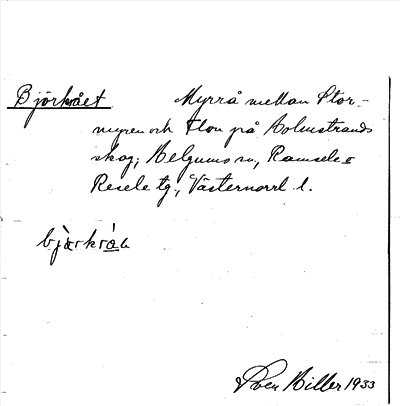 Björkrået Myrrå mellan Stor-
myren och Flon på Holmstrands
skog; Helgums sn., Ramsele o
Resele tg., Västernorrl. l.
bjœrkrá
Sven Hiller 1933